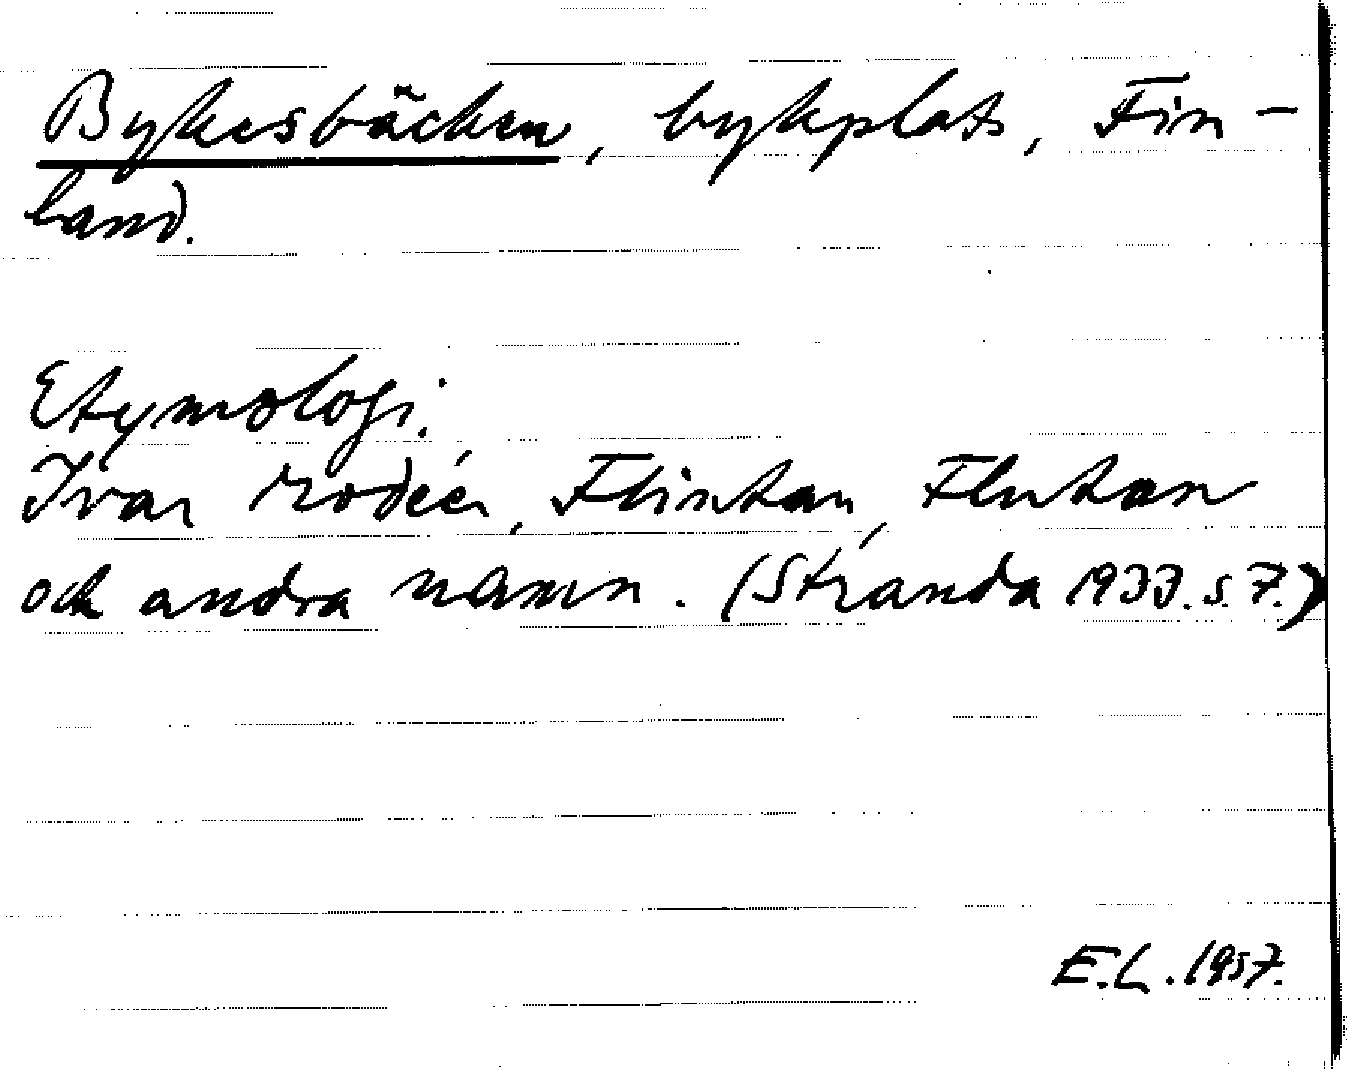 Bykesbäcken, bykplats, Fin-
land.
Etymologi.
Ivar Modéer, Flintan, Flutan
och andra namn. (Stranda 1933. s. 7.)
E.L. 1957.